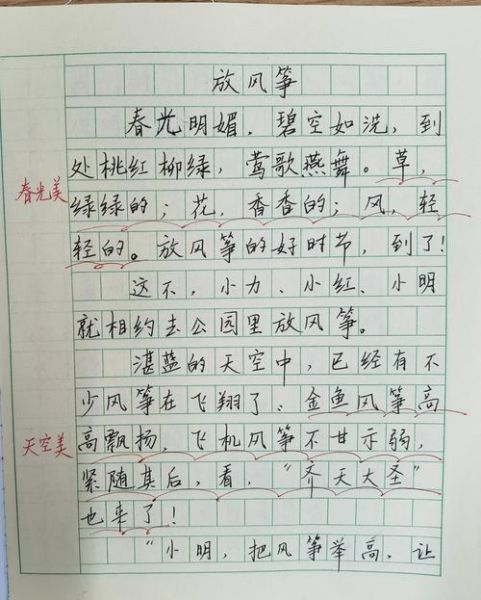 放风筝
春光明媚，碧空如洗，到
处桃红柳绿，莺歌燕舞。草，
春光美
绿绿的；花，香香的；风，轻
轻的。放风筝的好时节，到了！
这不，小力、小红、小明
就相约去公园里放风筝。
湛蓝的天空中，已经有不
少风筝在飞翔了，金鱼风筝高
天空美
高飘扬，飞机风筝不甘示弱，
紧随其后，看，“齐天大圣”
也来了！
“小明，把风筝举高，让